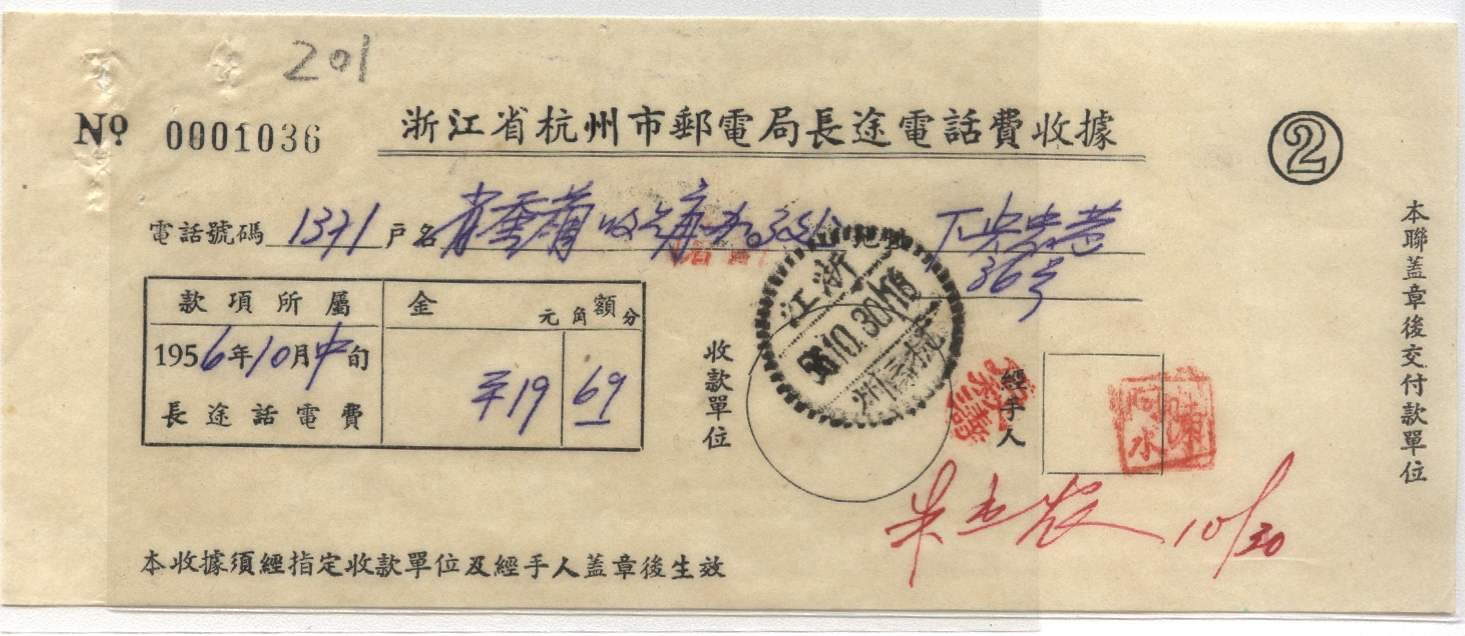 201
№ 0001036 浙江省杭州市郵電局長途電話費收據 ②
電話號碼 1371 戶名 地址
36号
款項所屬 金額 元角分
1956年10月中旬
長途話電費 19 69
收款單位
浙江
56.10.30.18
杭州
經手人
陳阿水
10/30
本收據須經指定收款單位及經手人蓋章後生效
本聯蓋章後交付款單位